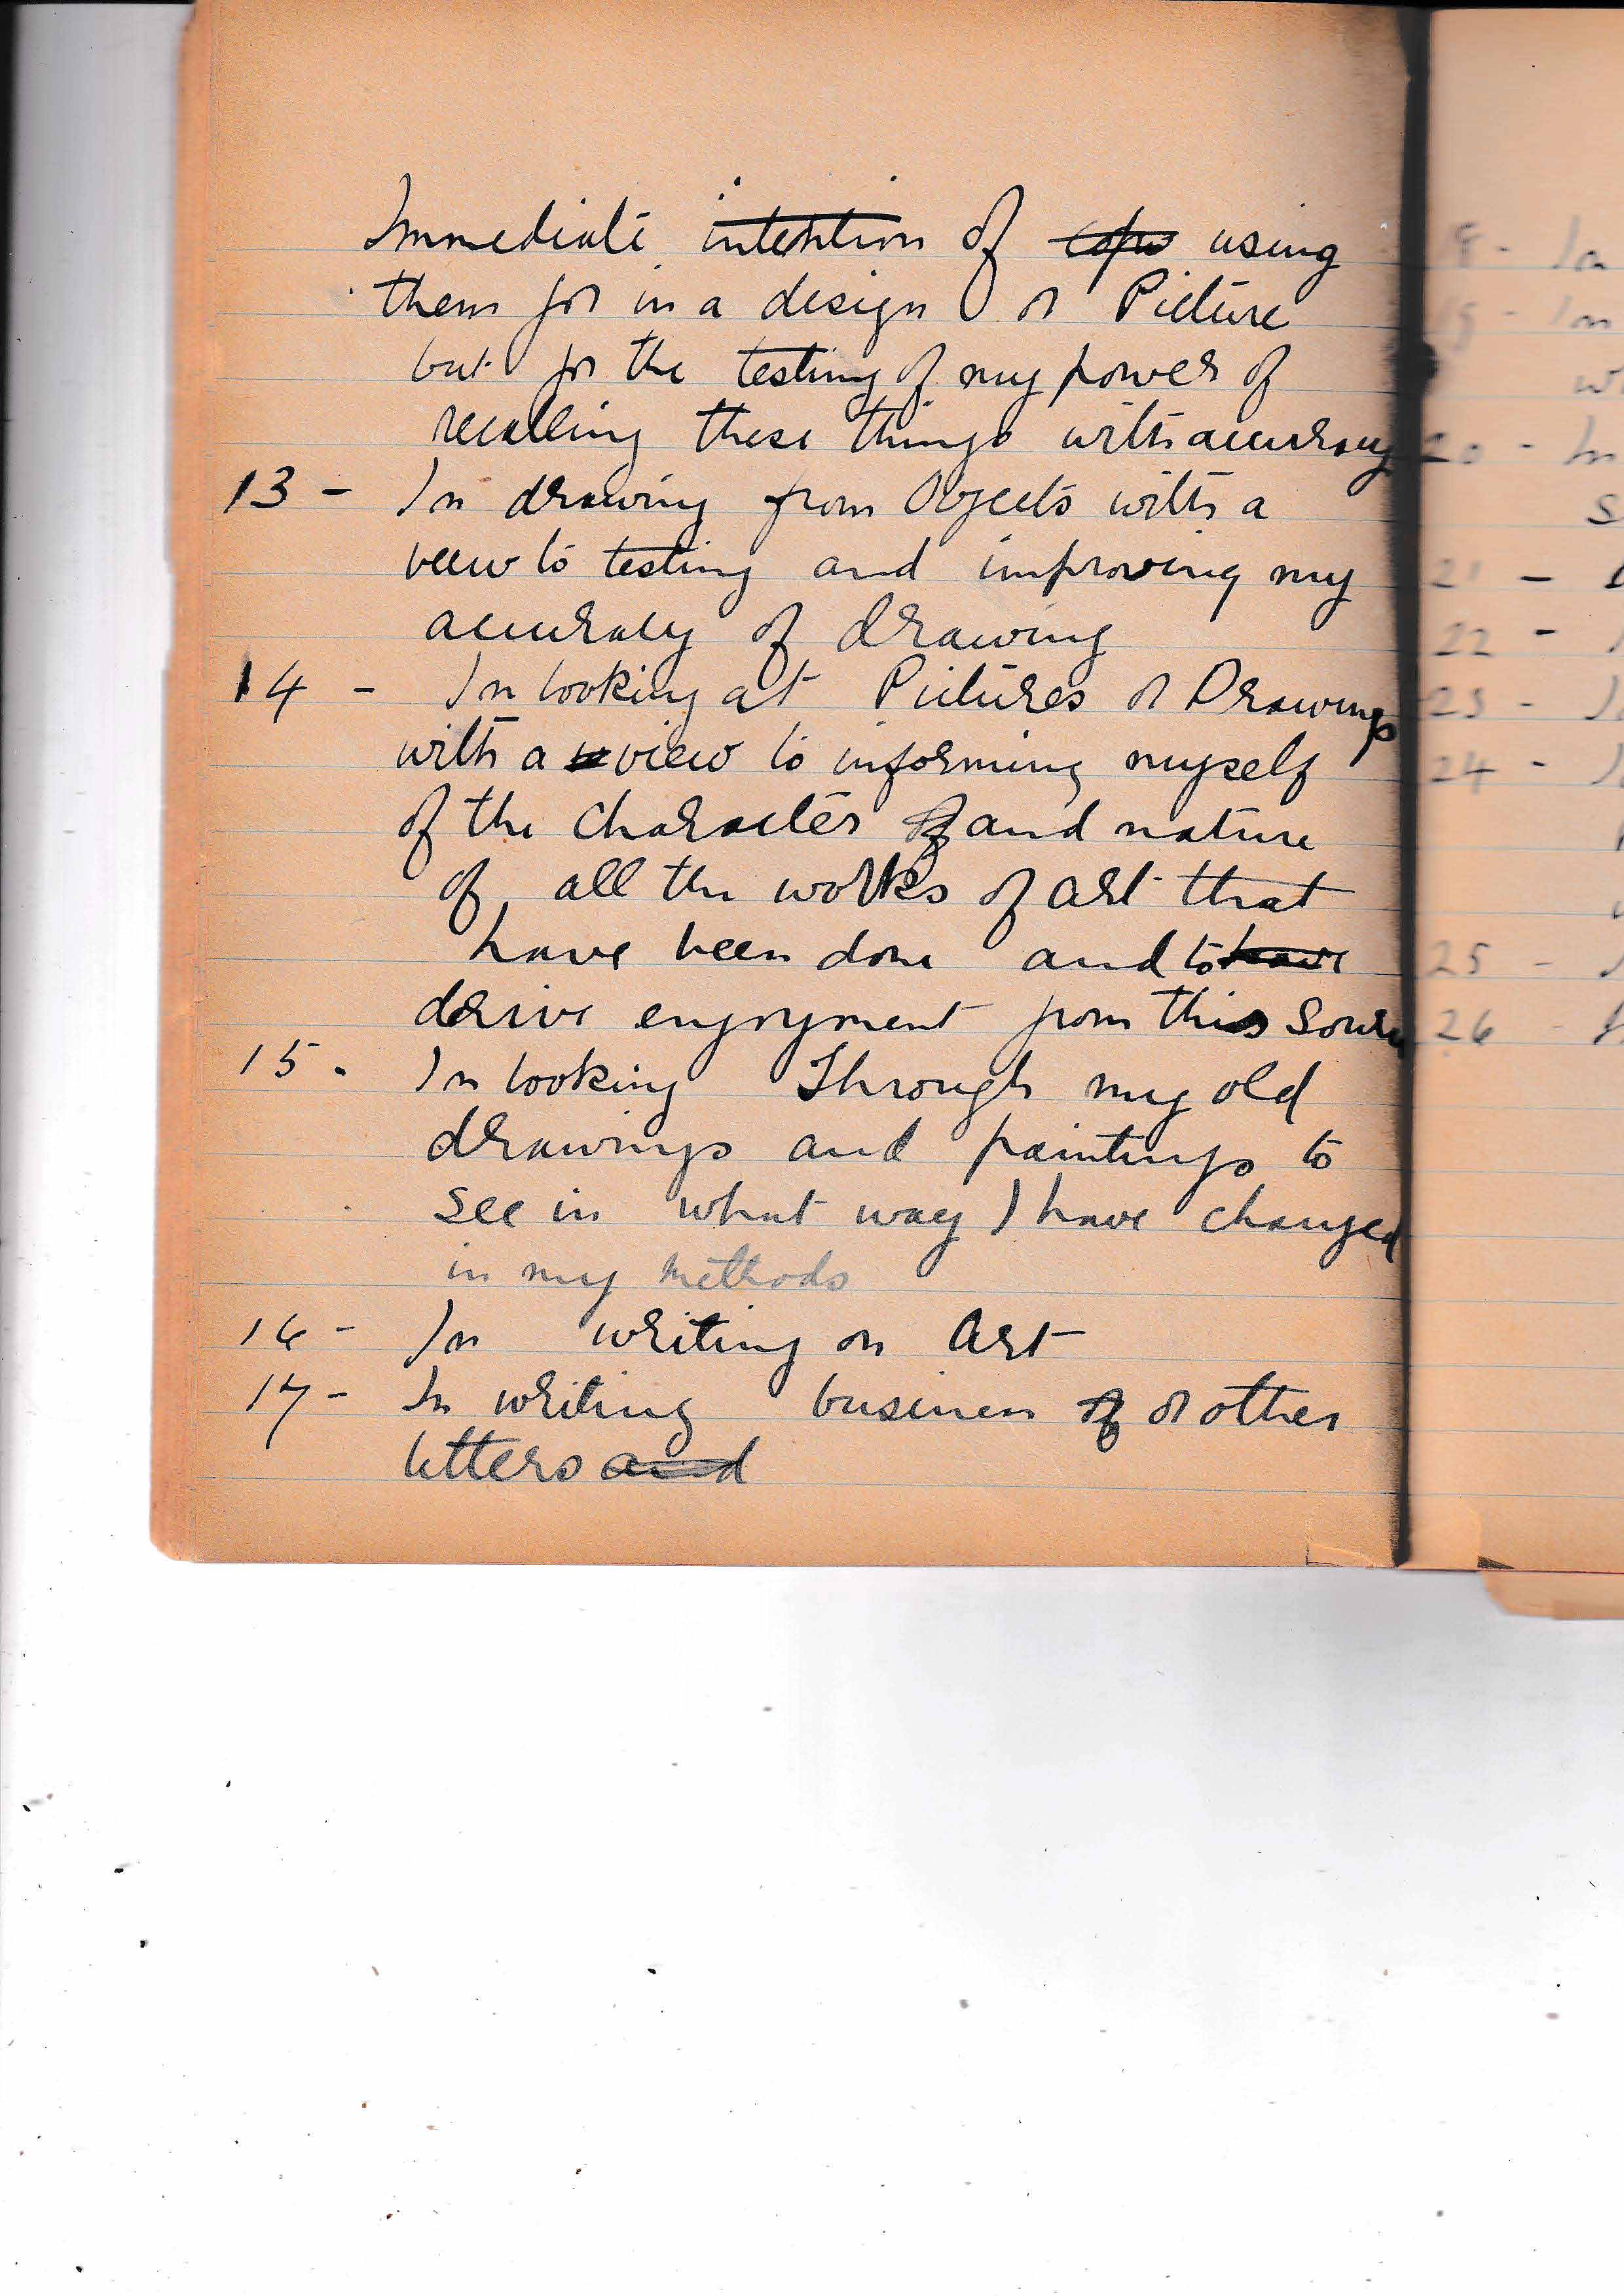 Immediate intention of ~~copw~~ using
them for in a design or Picture
but for the testing of my power of
recalling these things with accuracy
13 - In drawing from Objects with a
view to testing and improving my
accuracy of drawing
14 - In looking at Pictures or Drawings
with a view to informing myself
of the character ~~of~~ and nature
of all the works of art that
have been done and to ~~have~~
derive enjoyment from this source
15. In looking Through my old
drawings and paintings to
see in what way I have changed
in my methods
16 - In writing on Art
17 - In writing business ~~of~~ or other
letters ~~and~~
18 - In
19 - In
w
20 - In
s
21 -
22 -
23 -
24 -
25 -
26 -